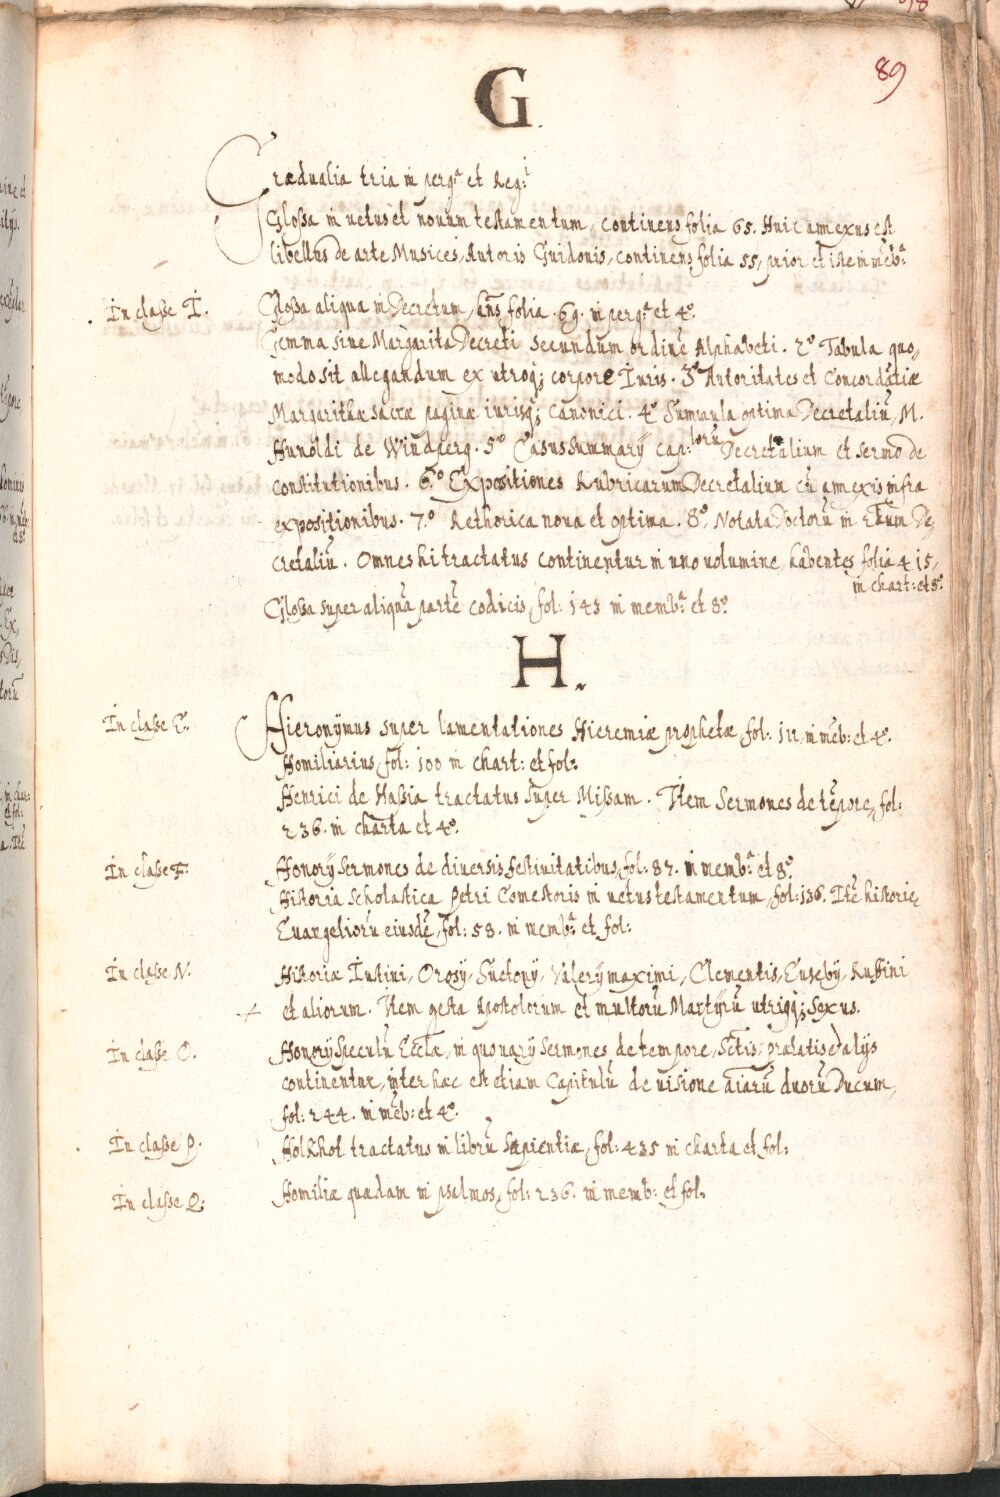 89
G.
Grædualia tria in perg: et Reg:
Glossa in uetus et nouum testamentum, continens folia 65. Huic annexus est
libellus de arte Musices, Autoris Guidonis, continens folia 55, prior et iste in mēb:
In classe I. Glossa aliqua in Decretum, hns folia .69. in perg: et 4º.
Gemma siue Margarita Decreti secundum ordinē Alphabeti. 2º Tabula quo,,
modo sit allegandum ex utroq; corpore Iuris. 3º Autoritates et Concordātiæ
Margarithæ sacræ paginæ iurisq; Canonici. 4º Summula optima Decretaliū, M.
Hunoldi de Windperg. 5º Casus Summarÿ Cap:lorū Decretalium et sermo de
constitutionibus. 6º Expositiones Rubricarum Decretalium cū annexis infra
expositionibus. 7.º Rethorica noua et optima. 8º. Notata Doctorū in De,,
cretaliū. Omnes hi tractatus continentur in uno uolumine, habentes folia 415,
in chart: et 8º.
Glossa super aliquā partē codicis, fol: 143 in memb: et 8º.
H.
In classe E. Hieronÿmus super lamentationes Hieremiæ prophetæ, fol: 111, in mēb: et 4º.
Homiliarius, fol: 100 in chart: et fol:
Henrici de Hassia tractatus super Missam. Item Sermones de tēpore, fol:
236. in charta et 4º.
In classe F. Honorÿ sermones de diuersis festiuitatibus, fol: 87. in memb: et 8º.
Historia Scholastica Petri Comestoris in uetus testamentum, fol: 136. Itē historie
Euangeliorū eiusdē, fol: 58. in memb: et fol:
In classe N. Historiæ Iustini, Orosÿ, Suetonÿ, Valerÿ maximi, Clementis, Eusebÿ, Ruffini
et aliorum. Item gesta Apostolorum et multorū Martÿrū utriq; sexus.
In classe O. Honorÿ Speculū Ecclæ, in quo uarÿ sermones de tempore, Sctis, prælatis et alÿs
continentur, inter hac est etiam Capitulū de uisione aīarū duorū Ducum,
fol: 244. in mēb: et 4º.
In classe P. Holkhot tractatus in librū Sapientiæ, fol: 435 in charta et fol:
In classe Q. Homiliæ quædam in psalmos, fol: 236. in memb: et fol.